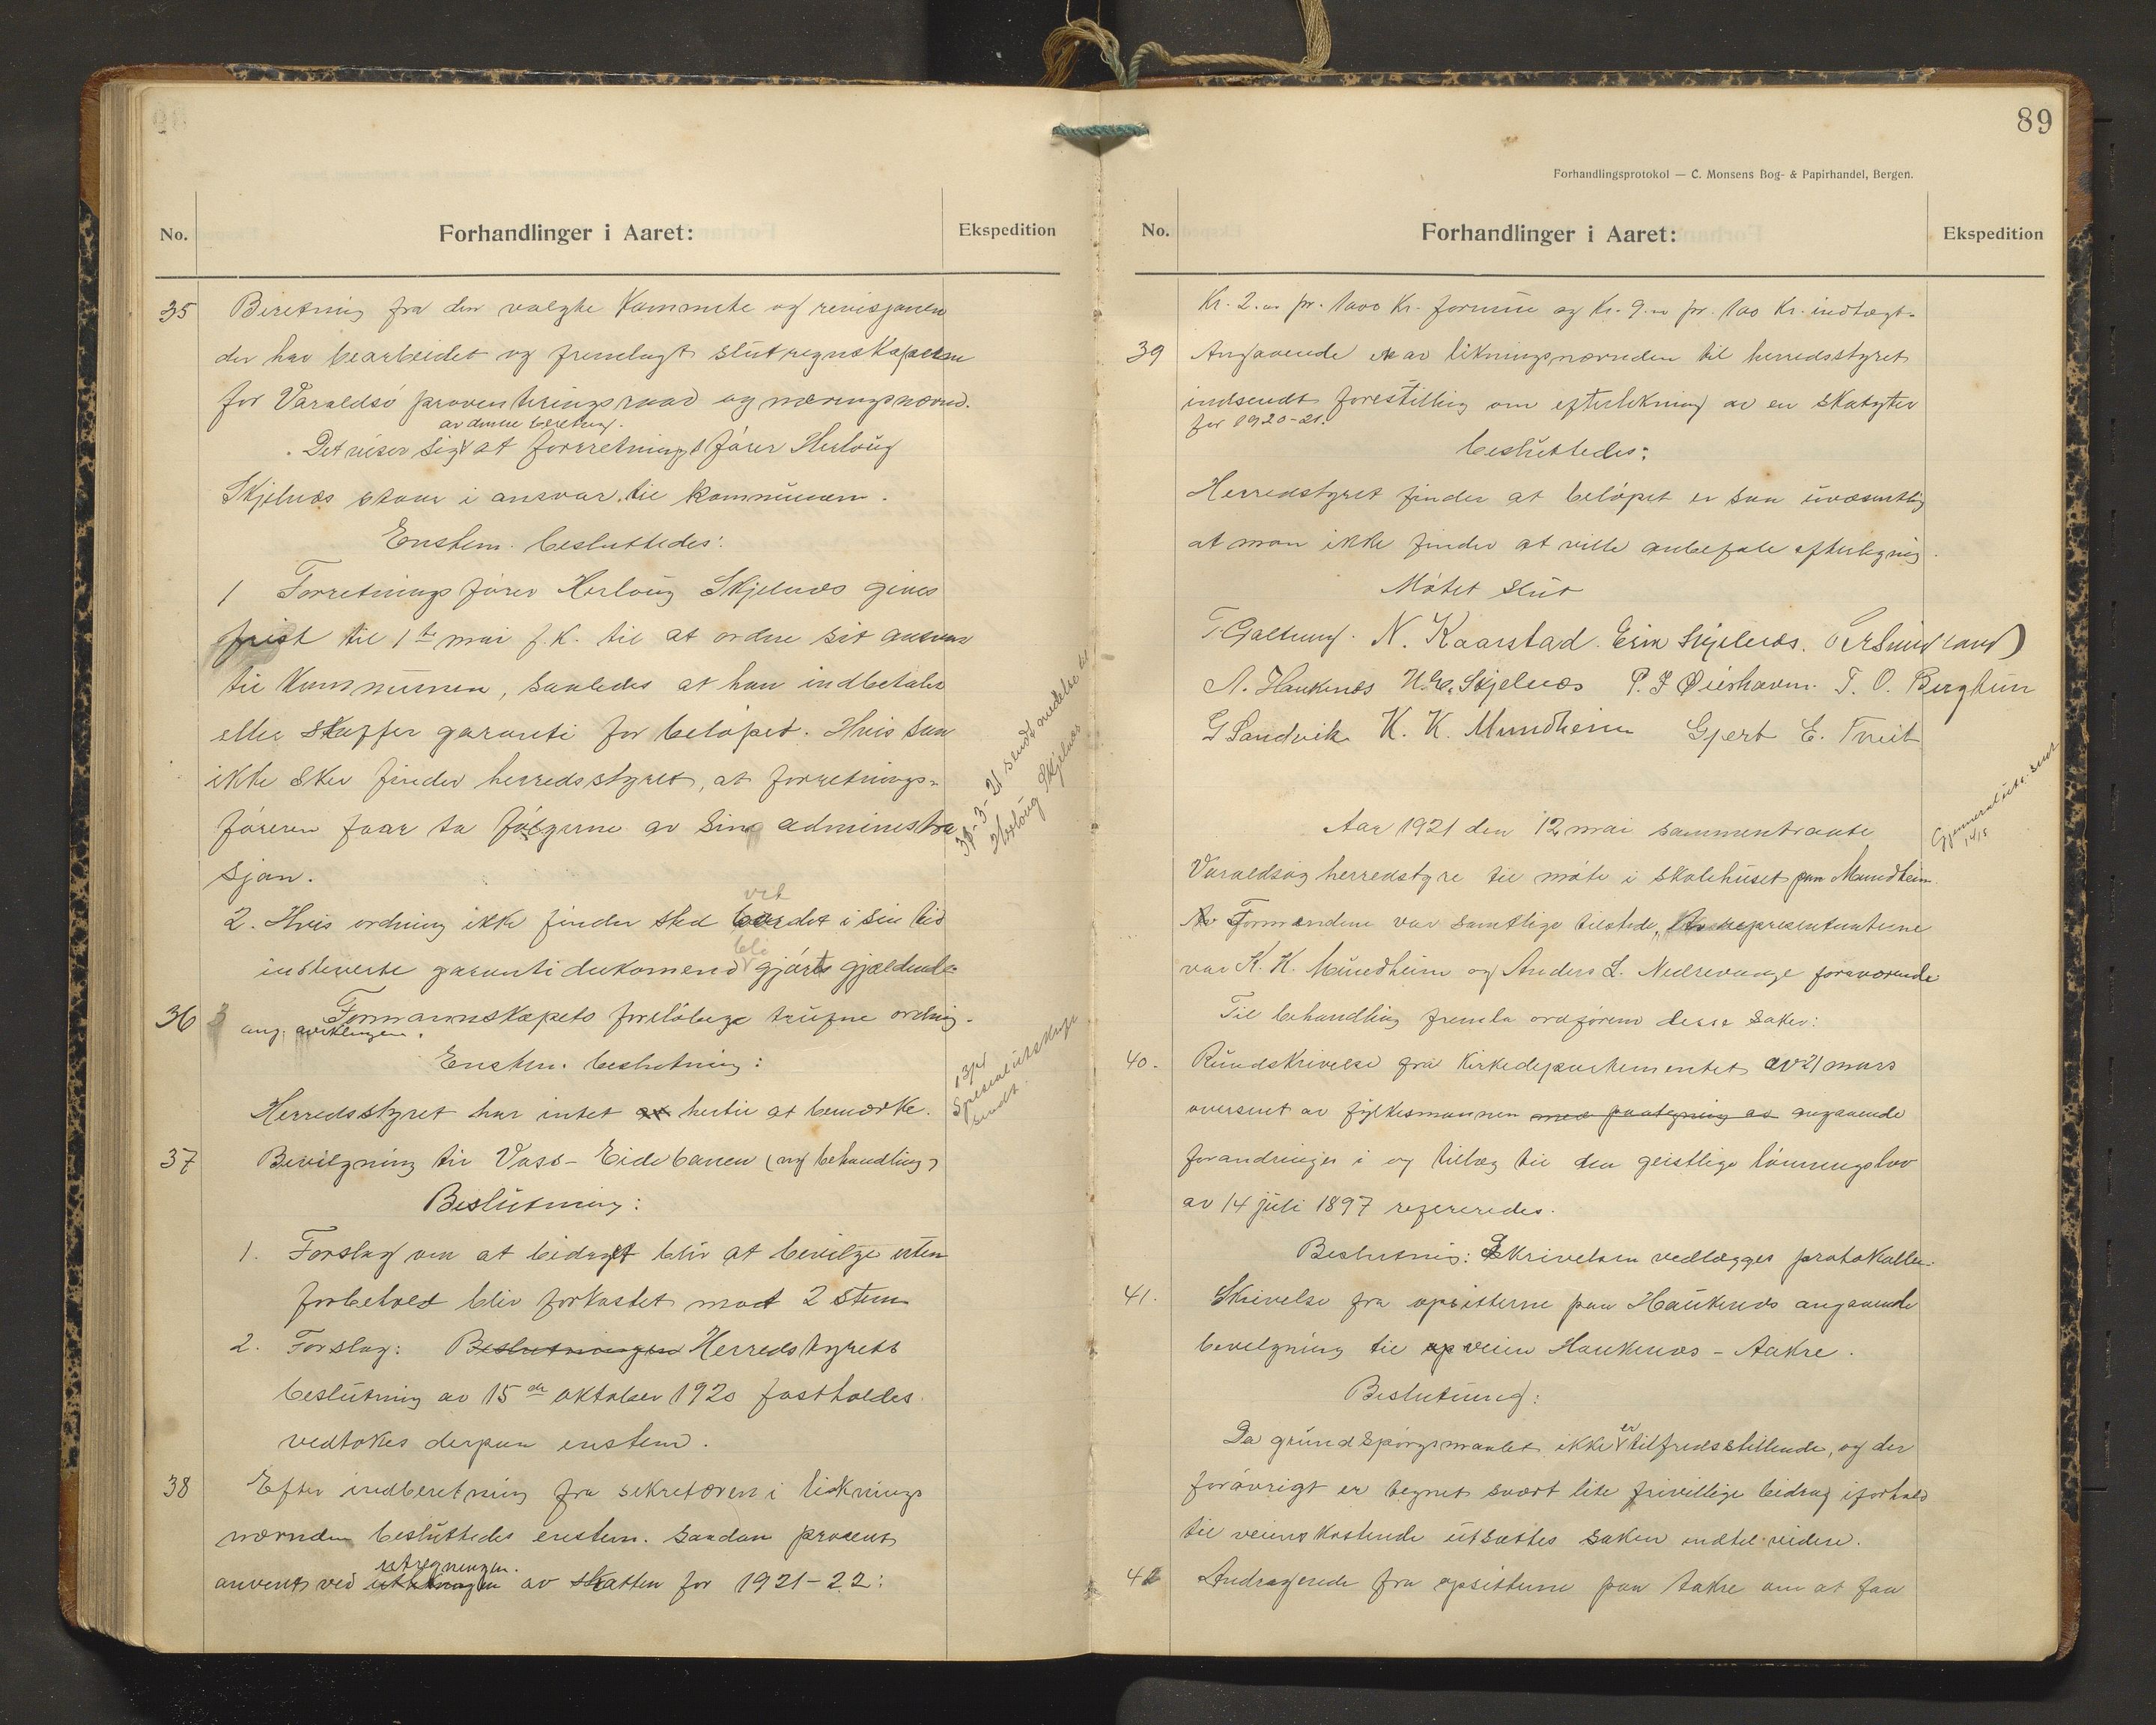 No.
Forhandlinger i Aaret:
Ekspedition
35 Beretning fra den valgte Kommite og revisjonen
der har bearbeidet og fremlagt slutregnskapene
for Varaldsö provianteringsraad og næringsnævnd.
av denne beretning.
Det viser sig at forretningsförer Herlöug
Skjelnæs staar i ansvar til kommunen.
Enstem. besluttedes:
1 Forretningsförer Herlöug Skjelnæs gives
frist til 1ste mai f.k. til at ordne sit ansvar
til Kommunen, saaledes at han indbetaler
eller skaffer garanti for belöpet. Hvis saa
ikke sker finder herredsstyret, at forretnings-
föreren faar ta fölgerne av sin administra
sjon.
2. Hvis ordning ikke finder sted ved det i sin tid
bli
insleverte garanti dokomend gjörts gjeldende
30-3-21 sendt meddelse til
Herlöug Skjelnæs
36 Formannskapets foreløbige trufne ordning
ang. avviklingen.
Enstem. beslutning:
Herredsstyret har intet at hertil at bemærke.
13/4
Spesialutskrift
sendt.
37 Bevilgning til Voss-Eidebanen (ny behandling)
Beslutning:
1. Forslag om at bidraget blir at bevilge uten
forbehold blir forkastet mot 2 stem
2. Forslag: Beslutningen Herredstyrets
beslutning av 15de oktober 1920 fastholdes
vedtokes derpaa enstem.
38 Efter indberetning fra sekretæren i liknings
nævnden besluttedes enstem. saadan procent
utregningen.
anvent ved utlikningen av skatten for 1921-22:
89
Forhandlingsprotokol — C. Monsens Bog- & Papirhandel, Bergen.
No.
Forhandlinger i Aaret:
Ekspedition
Kr. 2.00 pr. 1000 Kr. formue og Kr. 9.00 pr. 100 Kr. indtægt.
39 Angaaende en av likningsnævnden til herredsstyret
indsendt forestilling om efterlikning av en skatyter
for 1920-21.
besluttedes:
Herredstyret finder at belöpet er saa uvæsentlig
at man ikke finder at ville anbefale efterligning.
Mötet slut
T. Galtung. N. Kaarstad. Erik Skjelnæs. O A Sundland
A. Haukenæs H. E. Skjelnæs P. J Øierhavn. T. O. Bergtun
G Sandvik K. K. Mundheim Gjert E. Tveit
Aar 1921 den 12 mai sammentraate
Varaldsöy herredstyre til möte i skolehuset paa Mundheim.
Av Formændene var samtlige tilstede, Av representanterne
var K. K. Mundheim og Anders L. Nedrevaage foraværende
Til behandling fremla ordförern desse saker:
Gjenneralutsk. sendt
14/5
40. Rundskrivelse fra Kirkedepartementet av 21 mars
oversent av fylkesmannen med paategning av angaaende
forandringer i og tillæg til den geistlige lönningslov
av 14 juli 1897 refereredes.
Beslutning: Skrivelsen vedlægges protokollen.
41. Skrivelse fra opsitterne paa Haukenæs angaaende
bevelgning til op veien Haukenæs - Aakre.
Beslutning:
Da grundspörgsmaalet ikke er tilfredsstillende, og der
forövrigt er tegnet svært lite frivillige bidrag iforhold
til veiens kostende utsættes saken indtil videre.
42 Andragende fra opsitterne paa Aakre om at faa